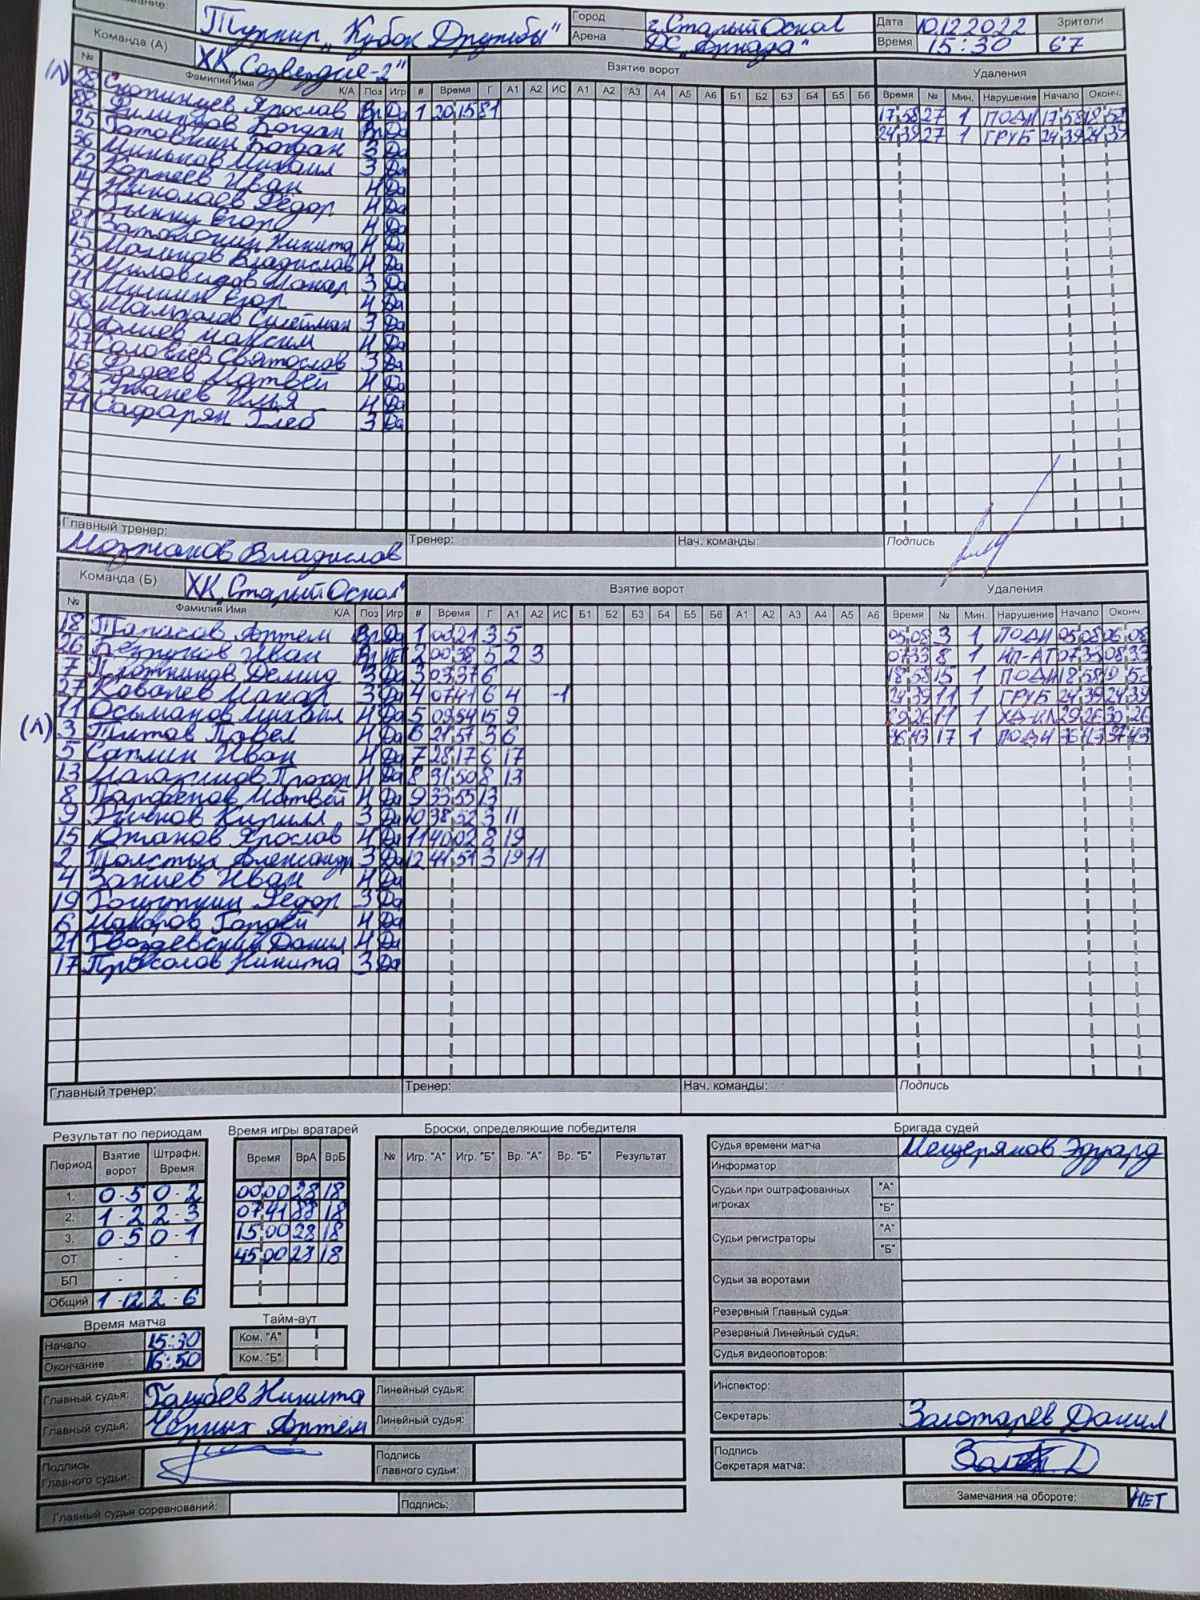 Турнир „Кубок Дружбы"
Город г. Старый Оскол Дата 10.12.2022 Зрители
Арена Время 15:30 67
Команда (А) ХК „Созвездие-2" Взятие ворот Удаления
№ Фамилия Имя К/А Поз Игр # Время Г А1 А2 ИС А1 А2 А3 А4 А5 А6 Б1 Б2 Б3 Б4 Б5 Б6 Время № Мин. Нарушение Начало Оконч.
(Л) 28 Скопинцев Ярослав Вр Да 1 20 15 81 17 58 27 1 ПОДН 17 58 18 58
88 Филиппов Богдан Вр Да 24 39 27 1 ГРУБ 24 39 24 39
25 Богдан З Да
36 Миньков Михаил З Да
72 Корнеев Иван Н Да
14 Николаев Фёдор Н Да
7 Егор Н Да
81 Никита Н Да
15 Владислав Н Да
50 Миловидов Макар З Да
11 Мишин Егор Н Да
96 Сулейман З Да
10 Максим Н Да
27 Соловьев Святослав З Да
16 Фадеев Матвей Н Да
22 Илья Н Да
71 Сафарян Глеб З Да
Главный тренер: Тренер: Нач. команды: Подпись
Можжаков Владислав
Команда (Б) ХК „Старый Оскол" Взятие ворот Удаления
№ Фамилия Имя К/А Поз Игр # Время Г А1 А2 ИС Б1 Б2 Б3 Б4 Б5 Б6 А1 А2 А3 А4 А5 А6 Время № Мин. Нарушение Начало Оконч.
18 Тарасов Артем Вр Да 1 00 21 3 5 05 08 3 1 ПОДН 05 08 06 08
26 Иван Вр НЕТ 2 00 38 5 2 3 07 33 8 1 НП-АТ 07 33 08 33
7 Плотников Демид З Да 3 03 37 6 18 58 15 1 ПОДН 18 58 19 58
27 Ковалев Макар З Да 4 07 41 6 4 -1 24 39 11 1 ГРУБ 24 39 24 39
11 Осьмаков Михаил Н Да 5 09 54 15 9 29 26 11 1 29 26 30 26
(Л) 3 Титов Павел Н Да 6 21 57 3 6 36 43 17 1 ПОДН 36 43 37 43
5 Саплин Иван Н Да 7 28 17 6 17
13 Прохор Н Да 8 31 50 8 13
8 Парфенов Матвей Н Да 9 33 55 13
9 Кирилл З Да 10 38 52 3 11
15 Южаков Ярослав Н Да 11 40 02 8 19
2 Толстых Александр З Да 12 44 51 3 19 11
4 Иван Н Да
19 Федор З Да
6 Макаров Гордей Н Да
21 Гвоздевский Данил Н Да
17 Просолов Никита З Да
Главный тренер: Тренер: Нач. команды: Подпись
Результат по периодам Время игры вратарей Броски, определяющие победителя Бригада судей
Период Взятие ворот Штрафн. Время Время ВрА ВрБ № Игр. "А" Игр. "Б" Вр. "А" Вр. "Б" Результат
1. 0-5 0-2 00 00 28 18
2. 1-2 2-3 07 41 88 18
3. 0-5 0-1 15 00 28 18
ОТ - - 45 00 23 18
БП - -
Общий 1-12 2-6
Время матча Тайм-аут
Начало 15:30 Ком. "А"
Окончание 16:50 Ком. "Б"
Судья времени матча Мещеряков Эдуард
Информатор
Судьи при оштрафованных игроках "А" "Б"
Судьи регистраторы "А" "Б"
Судьи за воротами
Резервный Главный судья:
Резервный Линейный судья:
Судья видеоповторов:
Главный судья: Голубев Никита Линейный судья: Инспектор:
Главный судья: Черных Артём Линейный судья: Секретарь: Золотарёв Данил
Подпись Главного судьи: Подпись Главного судьи: Подпись Секретаря матча:
Главный судья соревнований: Подпись: Замечания на обороте: НЕТ